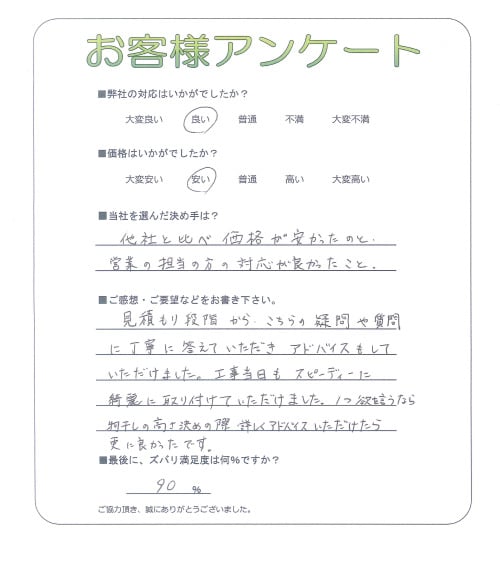 お客様アンケート
■弊社の対応はいかがでしたか?
大変良い 良い 普通 不満 大変不満
■価格はいかがでしたか?
大変安い 安い 普通 高い 大変高い
■当社を選んだ決め手は?
他社と比べ 価格が安かったのと、
営業の担当の方の対応が良かったこと。
■ご感想・ご要望などをお書き下さい。
見積もり段階から、こちらの疑問や質問
に丁寧に答えていただき アドバイスもして
いただけました。工事当日も スピーディーに
綺麗に取り付けていただけました。1つ欲を言うなら
物干しの高さ決めの際 詳しくアドバイスいただけたら
更に良かったです。
■最後に、ズバリ満足度は何%ですか?
90 %
ご協力頂き、誠にありがとうございました。